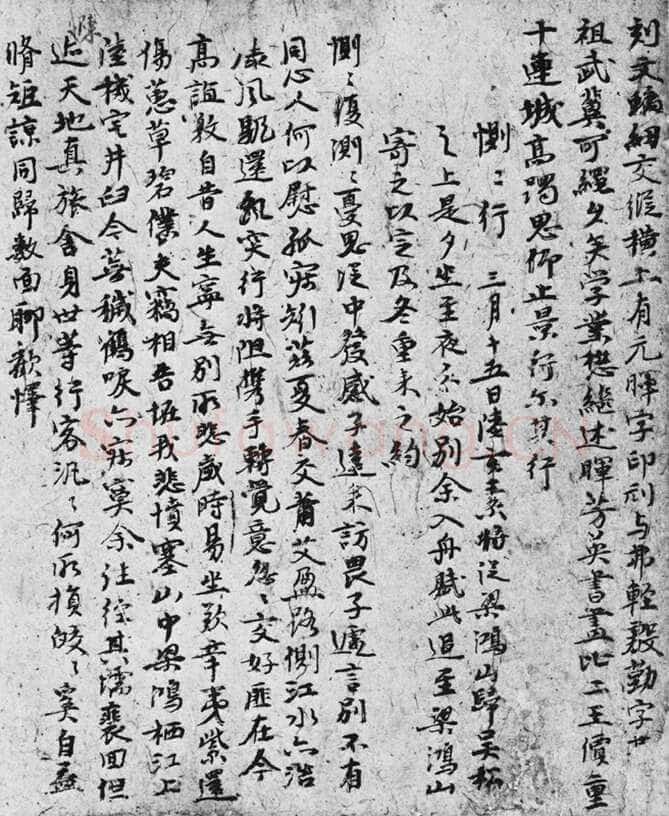 刻文縞細交縱橫上有元暉字印刻与弗輕毅勤字廿
祖武冀可繩久矣学業想繼述暉芳英書盖比二王價重
十連城高躅思仰止景行尓其行
惻〻行 三月十五日陸玄素將從梁鴻山歸吴松
之上是夕坐至夜分始別余入舟賦此追至梁鴻山
寄之以定及冬重来之約
惻〻復惻〻憂思從中發感子遠来訪畏子遽言別不有
同心人何以慰孤寂矧兹夏春交蕭艾盈路側江水亦浩
凉風颭還亂突行將阻攜手轉覺意忽〻交好匪在今
高誼敦自昔人生寧無別所悲歲時易坐歎辛夷紫還
傷蕙草碧僕夫竊相告怪我悲憤塞山中梁鴻栖江上
陸機宅井臼今蕪穢鶴唳亦寂寞余往經其墟裵回但
陳
迹天地真旅舍身世等行客汎〻何所損皎〻奚自益
脩短諒同歸數面聊歡懌
ShufaWang.CN